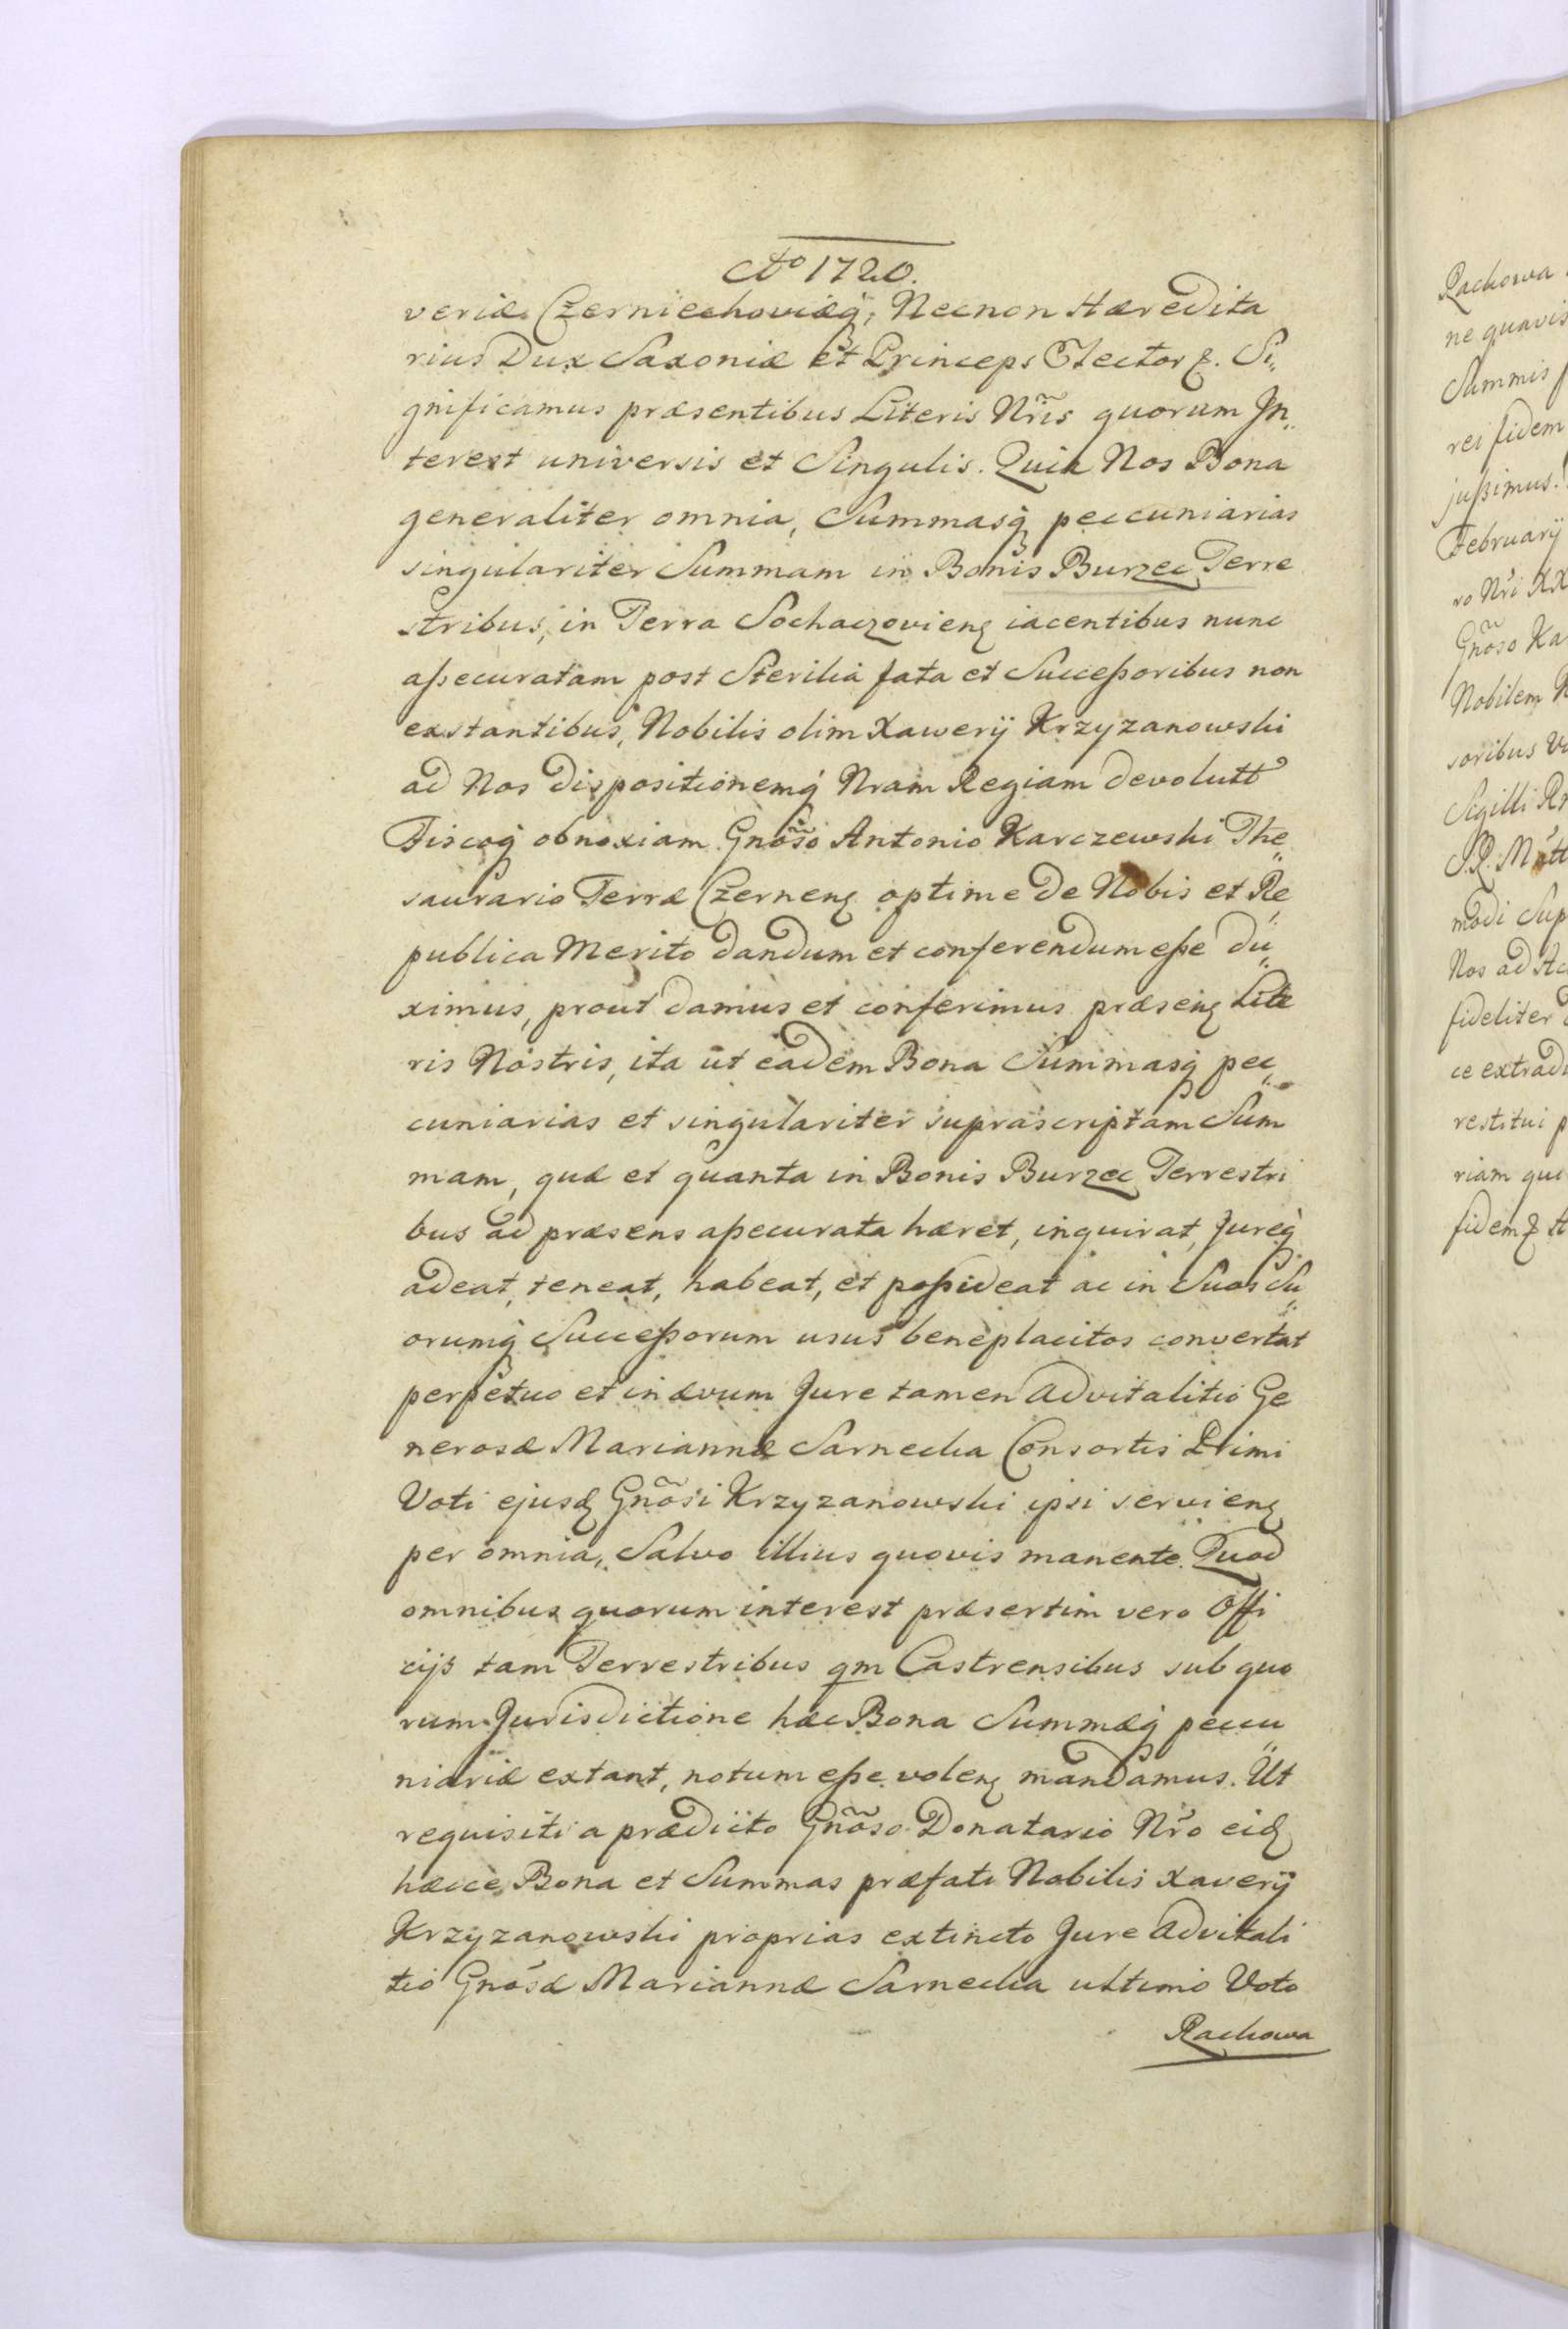 Ao 1720.
veriæ Czerniechoviæq; Necnon Hæredita
rius Dux Saxoniæ et Princeps Elector &. Si„
gnificamus præsentibus Literis Nr̃is quorum In„
terest universis et Singulis. Quia Nos Bona
generaliter omnia, Summasq peccuniarias
singulariter Summam in Bonis Burzec Terre
stribus, in Terra Sochaczovienȝ iacentibus nunc
aßecuratam post Sterilia fata et Succeßoribus non
exstantibus, Nobilis olim Xawerij Krzyzanowski
ad Nos dispositionemq Nram Regiam devolutt
Fiscoq obnoxiam Gnõso Antonio Karczewski The„
saurario Terræ Czernenȝ optime de Nobis et Re„
publica Merito dandum et conferendum eße du„
ximus, prout damus et conferimus præsenȝ Lite
ris Nostris, ita ut eadem Bona Summasq pec„
cuniarias et singulariter suprascriptam Sum
mam, quæ et quanta in Bonis Burzec Terrestri
bus ad præsens aßecurata hæret, inquirat, Jureq
adeat, teneat, habeat, et poßideat ac in Suos Su„
orumq Succeßorum usus beneplacitos convertat
perpetuo et in ævum Jure tamen Advitalitio Ge
nerosæ Mariannæ Sarnecka Consortis Primi
Voti ejusȡ Gnõsi Krzyzanowski ipsi servienȝ
per omnia, Salvo illius quovis manente. Quod
omnibus quorum interest præsertim vero Offi
cijs tam Terrestribus qm Castrensibus sub quo
rum Jurisdictione hæc Bona Summæq peccu„
niariæ extant, notum eße volenȝ mandamus. Ut
requisiti a prædicto Gnõso Donatario Nr̃o eiȡ
hæcce Bona et Summas præfati Nobilis Xaverij
Krzyzanowski proprias extincto Jure Advitali
tio Gnosæ Mariannæ Sarnecka ultimo Voto
Rachowa
Rachowa
ne quavis
Summis
rei fidem
jußimus.
February
ro Nr̃i XX
Gnõso Ka
Nobilem
soribus
Sigilli
S.R. Mtt
modi Sup
Nos ad Ac
fideliter
ce extrad
restitui p
riam qu
fidem &